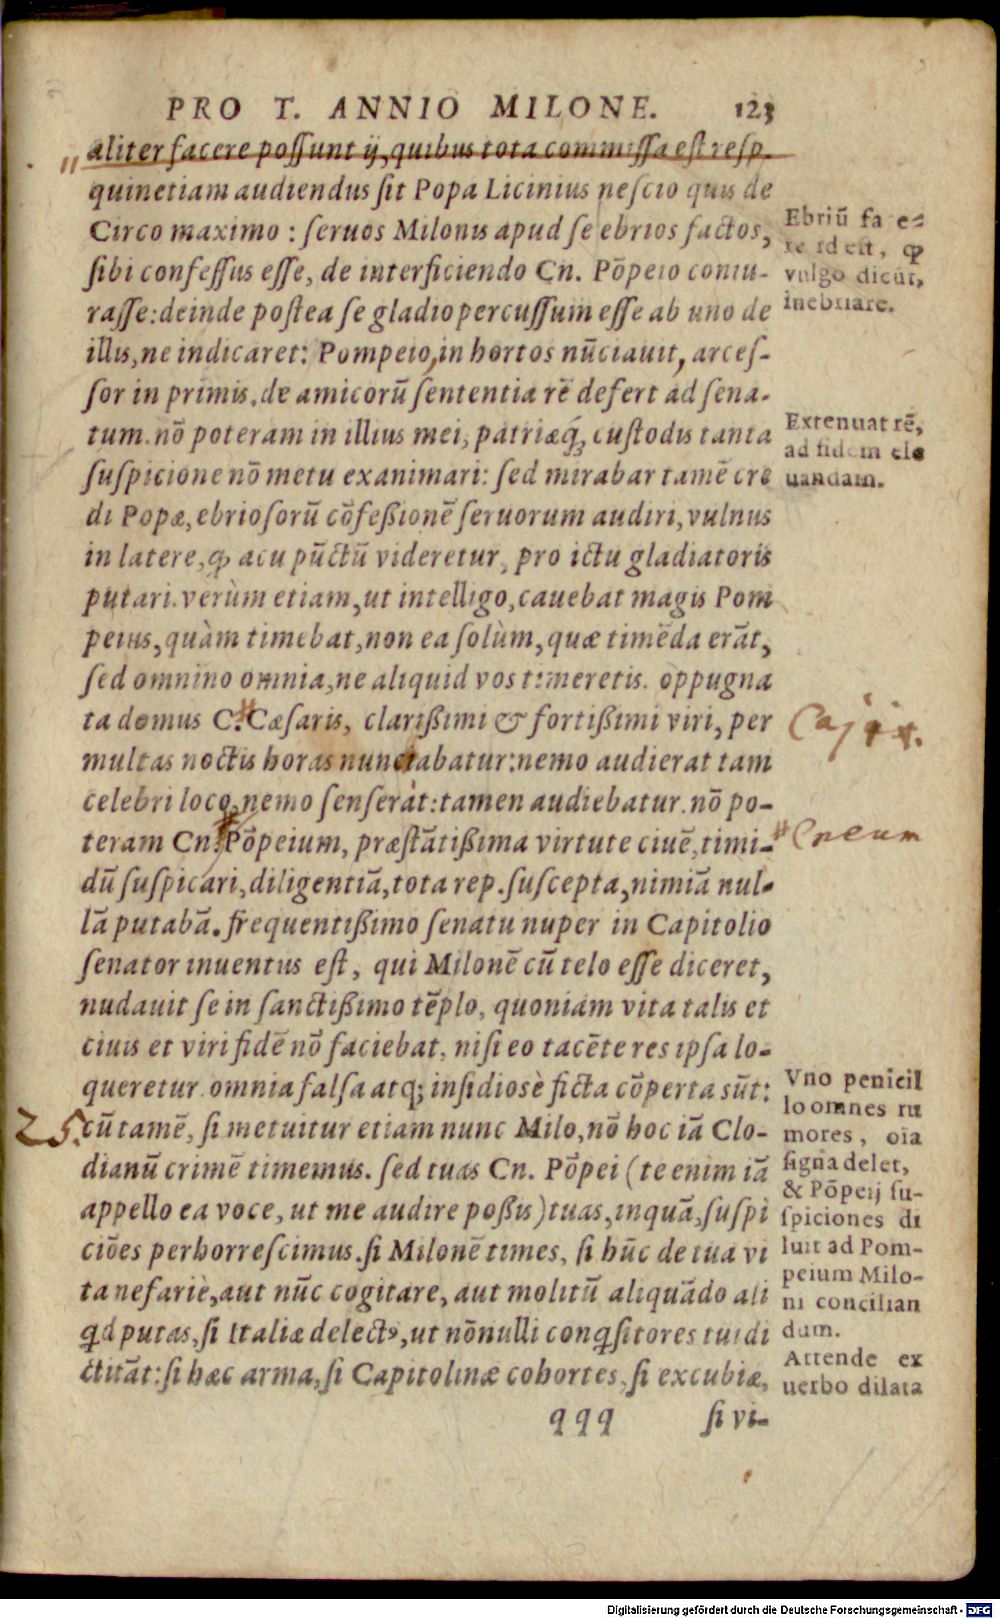 PRO T. ANNIO MILONE. 123
aliter facere possunt ij, quibus tota commissa est resp.
quinetiam audiendus sit Popa Licinius nescio quis de
Circo maximo : seruos Milonis apud se ebrios factos,
sibi confessus esse, de interficiendo Cn. Põpeio coniu-
rasse: deinde postea se gladio percussum esse ab uno de
illis, ne indicaret: Pompeio, in hortos nũciauit, arces-
sor in primis. de amicorũ sententia rẽ defert ad sena-
tum. nõ poteram in illius mei, patriæq́; custodis tanta
suspicione nõ metu exanimari: sed mirabar tamẽ cre
di Popæ, ebriosorũ cõfeßionẽ seruorum audiri, vulnus
in latere, ꝙ acu pũctũ videretur, pro ictu gladiatoris
putari. verùm etiam, ut intelligo, cauebat magis Pom
peius, quàm timebat, non ea solùm, quæ timẽda erãt,
sed omnino omnia, ne aliquid vos timeretis. oppugna
ta domus C. Cæsaris, clarißimi & fortißimi viri, per
multas noctis horas nunctabatur: nemo audierat tam
celebri loco, nemo senserat: tamen audiebatur. nõ po-
teram Cn. Põpeium, præstãtißima virtute ciuẽ, timi-
dũ suspicari, diligentiã, tota rep. suscepta, nimiã nul-
lã putabã. frequentißimo senatu nuper in Capitolio
senator inuentus est, qui Milonẽ cũ telo esse diceret,
nudauit se in sanctißimo tẽplo, quoniam vita talis et
ciuis et viri fidẽ nõ faciebat, nisi eo tacẽte res ipsa lo-
queretur. omnia falsa atq; insidiosè ficta cõperta sũt:
25. cũ tamẽ, si metuitur etiam nunc Milo, nõ hoc iã Clo-
dianũ crimẽ timemus. sed tuas Cn. Põpei (te enim iã
appello ea voce, ut me audire poßis) tuas, inquã, suspi
ciões perhorrescimus. si Milonẽ times, si hũc de tua vi
ta nefariè, aut nũc cogitare, aut molitũ aliquãdo ali
qd putas, si Italiæ delectꝰ, ut nõnulli conqsitores tui di
ctitãt: si hæc arma, si Capitolinæ cohortes, si excubiæ,
qqq si vi-
Ebriũ fa e-
re id est, ꝙ
vulgo dicũt,
inebriare.
Extenuat rẽ,
ad fidem ele
uandam.
Cajix.
Cneum
Vno penicil
lo omnes ru
mores, oĩa
signa delet,
& Põpeij su-
spiciones di
luit ad Pom-
peium Milo-
ni concilian
dum.
Attende ex
uerbo dilata
Digitalisierung gefördert durch die Deutsche Forschungsgemeinschaft - DFG